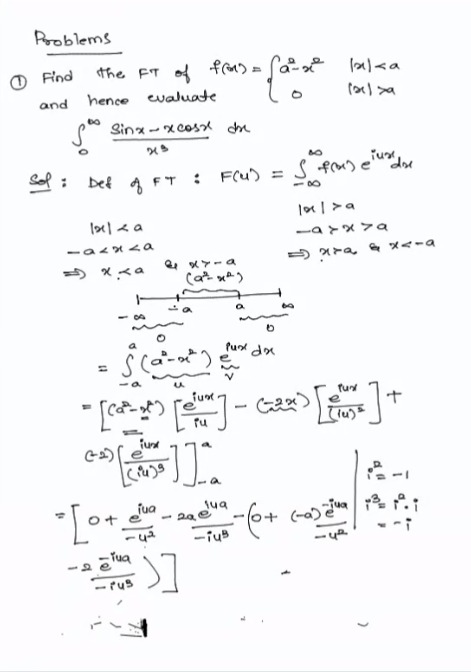 Problems
① Find the FT of f(x) = { a²-x² |x|<a
0 |x|>a
and hence evaluate
∫₀^∞ (sinx - xcosx)/x³ dx
Sol : Def of FT : F(u) = ∫_{-∞}^{∞} f(x) e^{iux} dx
|x| < a
-a<x<a
⇒ x<a & x>-a
|x| > a
-a>x>a
⇒ x>a & x<-a
(a²-x²)
-∞ -a a ∞
0 0
= ∫_{-a}^{a} (a²-x²) e^{iux} dx
u v
= [(a²-x²) [e^{iux}/iu] - (-2x) [e^{iux}/(iu)²] +
(-2) [e^{iux}/(iu)³]]_{-a}^{a}
= [0 + e^{iua}/-u² - 2a e^{iua}/-iu³ - (0 + (-a) e^{-iua}/-u²
- 2 e^{-iua}/-iu³)]
i² = -1
i³ = i².i
= -i